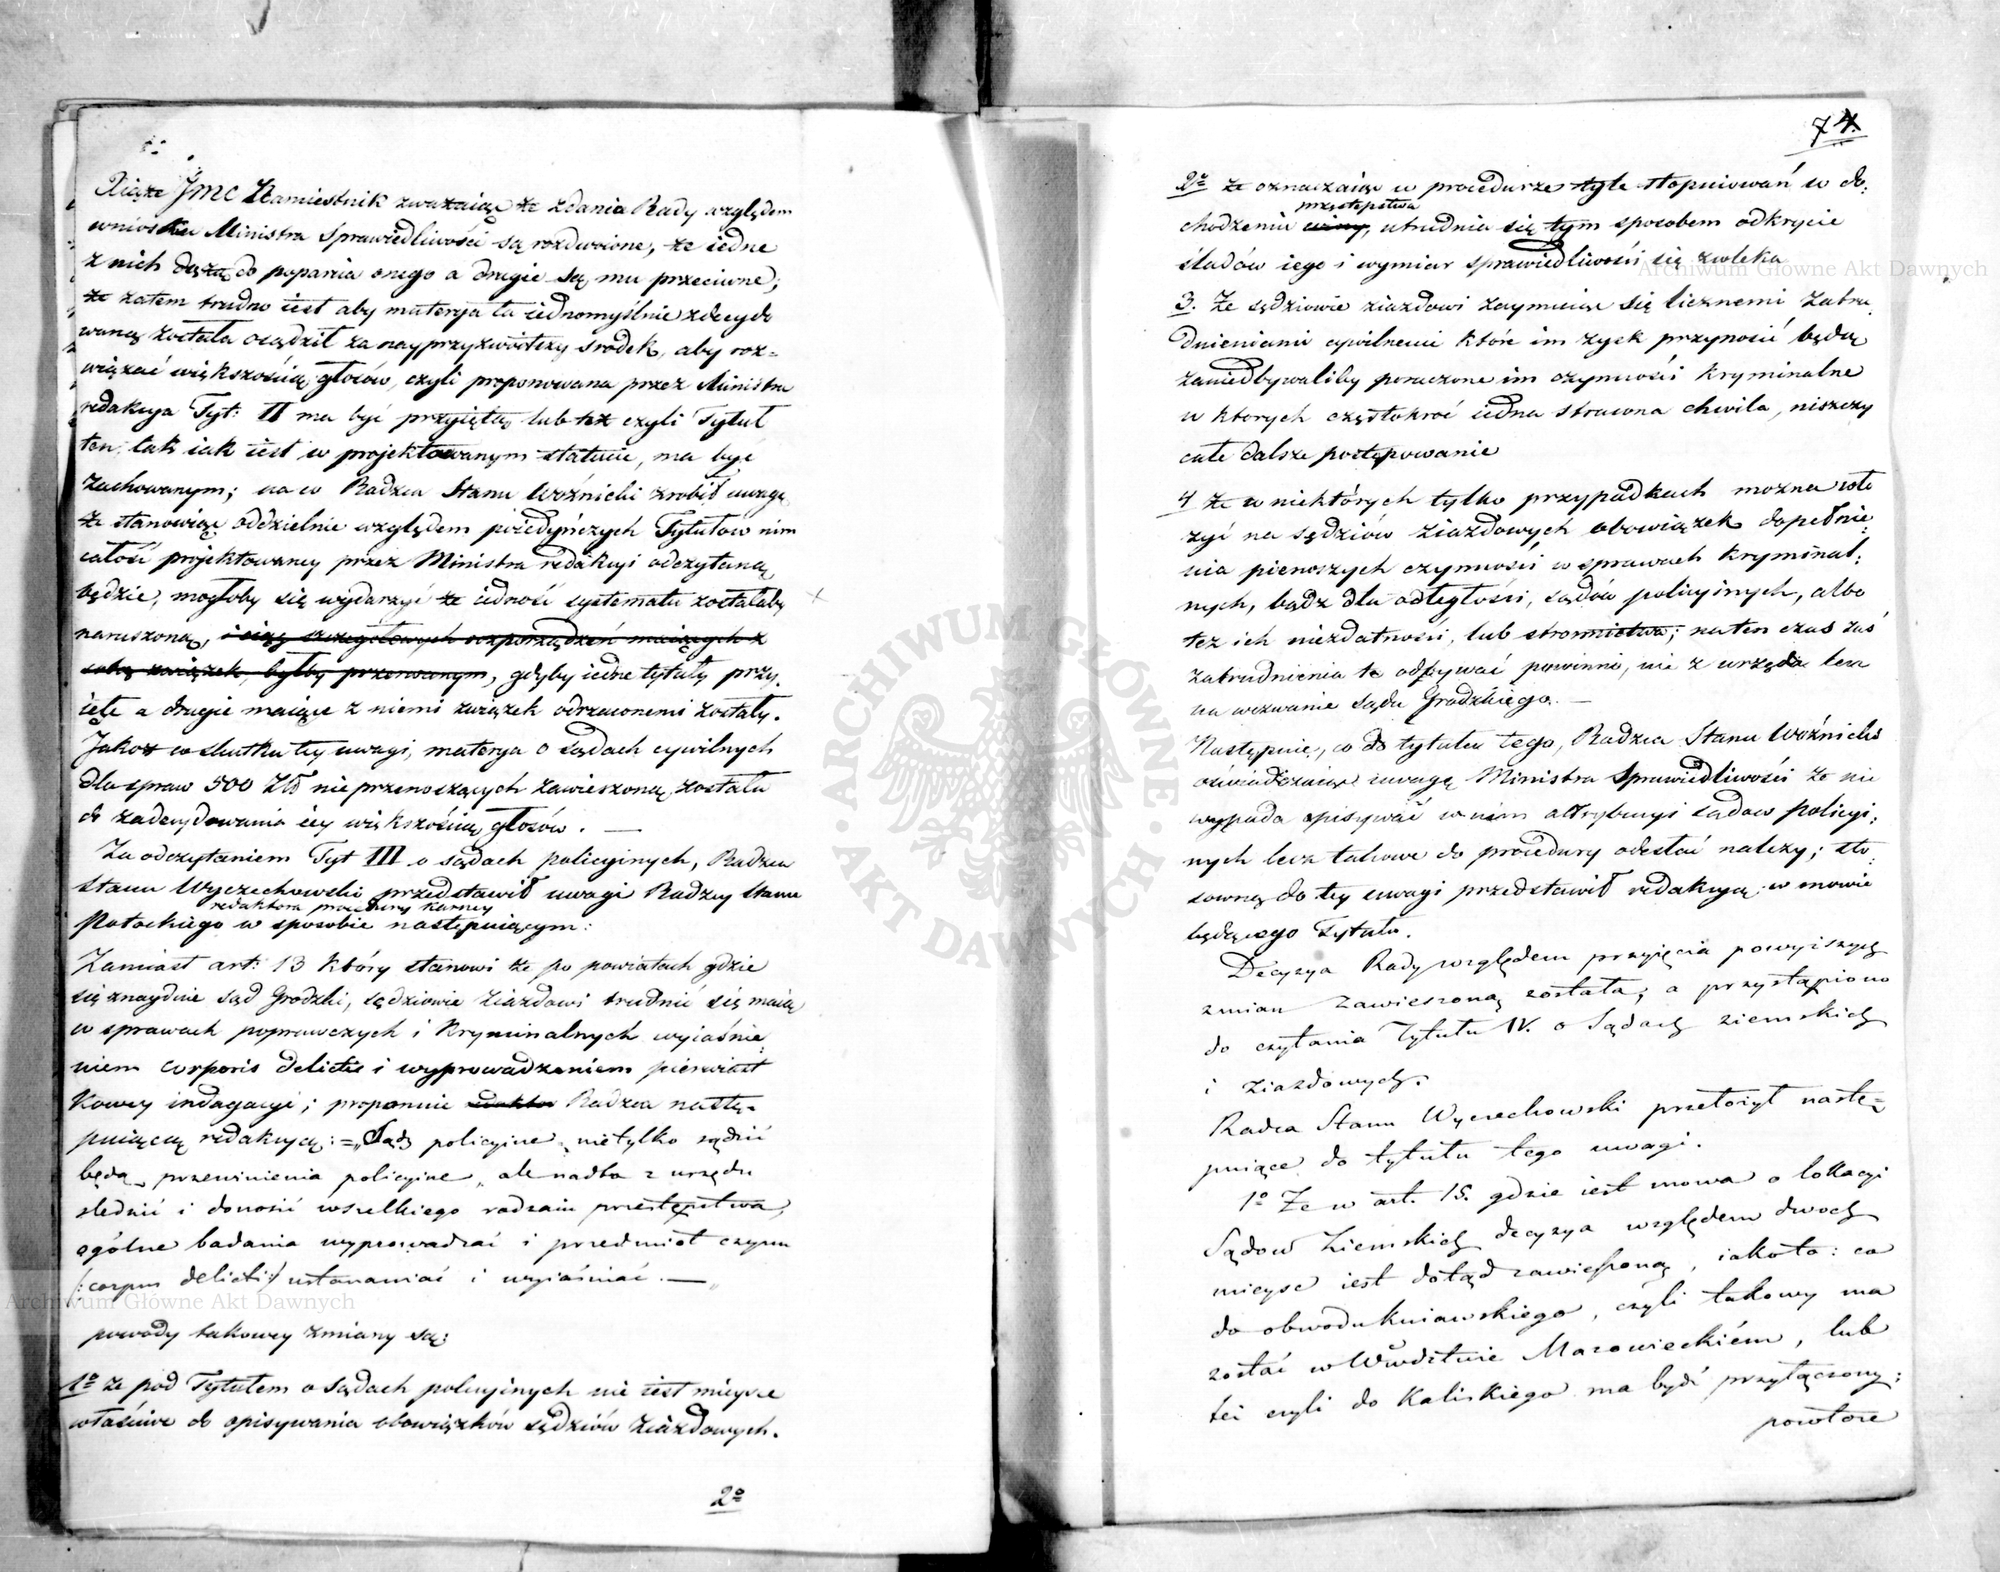 Xiąże JMC Namiestnik zważaiąc że zdania Rady względem
wniosku Ministra Sprawiedliwości są rozdwoione, że iedne
z nich dążą do poparcia onego a drugie są mu przeciwne;
że zatem trudno iest aby materya ta iednomyślnie zdecydo
waną została osądził za nayprzyzwoitszy srodek, aby roz-
wiązać większością głosów, czyli proponowana przez Ministra
redakcya Tyt: II ma być przyiętą lub też czyli Tytuł
ten tak iak iest w projektowanym statucie, ma być
zachowanym; na co Radzca Stanu Woźnicki zrobił uwagę
że stanowiąc oddzielnie względem poiedyńczych Tytułow nim
całość projektowaney przez Ministra redakcyi odczytaną
będzie, mogłoby się wydarzyć że iedność systematu zostałaby
naruszoną, i ciąg szczegułowych rozporządzeń maiących z
sobą związek, byłby przerwanym, gdyby iedne tytuły przy
ięte a drugie maiące z niemi związek odrzuconemi zostały.
Jakoż w skutku tey uwagi, materya o sądach cywilnych
dla spraw 500 Złł nie przenoszących zawieszoną została
do zadecydowania iey większością głosów. —
Za odczytaniem Tyt III o sądach policyinych, Radzca
Stanu Wyczechowski przedstawił uwagi Radzcy Stanu
redaktora procedury karney
Potockiego w sposobie następuiącym:
Zamiast art: 13 który stanowi że po powiatach gdzie
się znayduie sąd Grodzki, sędziowie ziazdowi trudnić się maią
w sprawach poprawczych i kryminalnych wyiaśnie
niem corporis delicti i wyprowadzeniem pierwiast
kowey indagacyi; proponuie redaktor Radzca nastę-
puiącą redakcyą: =„Sądy policyine nietylko sądzić
będą przewinienia policyine, ale nadto z urzędu
sledzić i donosić wszelkiego rodzaiu przestępstwa,
ogólne badania wyprowadzać i przedmiot czynu
/:corpus delicti:/ ustanawiać i wyiaśniać. — „
powody takowey zmiany są:
1º że pod Tytułem o Sądach policyinych nie iest mieysce
właściwe do opisywania obowiązków sędziów Ziazdowych.
2º
74.
2º że oznaczaiąc w procedurze tyle stopniowań w do
przestępstwa
chodzeniu winy, utrudnia się tym sposobem odkrycie
śladów iego i wymiar sprawiedliwości się zwleka
3. Że sędziowie ziazdowi zaymuiąc się licznemi zatru
dnieniami cywilnemi które im zysk przynosić będą
zaniedbywaliby poruczone im czynności kryminalne
w ktorych częstokroć iedna stracona chwila, niszczy
całe dalsze postępowanie
4 że w niektórych tylko przypadkach można wło
żyć na sędziów ziazdowych obowiązek dopełnie
nia pierwszych czynności w sprawach kryminal
nych, bądz dla odległości, sądów policyinych, albo
też ich niezdatności, lub stronnictwa; na ten czas zaś
zatrudnienia te odbywać powinni, nie z urzędu lecz
na wezwanie sądu Grodzkiego. —
Następnie, co do tytułu tego, Radzca Stanu Woźnicki
oświadczaiąc uwagę Ministra Sprawiedliwości że nie
wypada opisywać w nim attrybucyi sądow policyi
nych lecz takowe do procedury odesłać należy; sto
sowną do tey uwagi przedstawił redakcyą w mowie
będącego Tytułu.
Decyzya Rady względem przyięcia powyższych
zmian zawieszoną została; a przystąpiono
do czytania Tytułu IV. o Sądach ziemskich
i Ziazdowych.
Radca Stanu Wyczechowski przełożył nastę=
puiące do tytułu tego uwagi.
1º Że w art. 15. gdzie iest mowa o lokacyi
Sądow Ziemskich decyzya względem dwoch
mieysc iest dotąd zawieszoną, iakoto: co
do obwodu Kuiawskiego, czyli takowy ma
zostać w Wwdztwie Mazowieckiém, lub
też czyli do Kaliskiego ma bydź przyłączony;
powtore